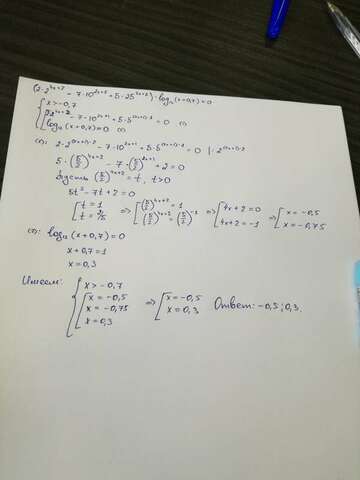 (2·2^{4x+2} - 7·10^{2x+1} + 5·25^{2x+1})·log₁₂(x+0,7)=0
{ x>-0,7
2·2^{4x+2} - 7·10^{2x+1} + 5·5^{(2x+1)·2} = 0 (1)
log₁₂(x+0,7)=0 (2)
(1): 2·2^{(2x+1)·2} - 7·10^{2x+1} + 5·5^{(2x+1)·2} = 0 |: 2^{(2x+1)·2}
5·(5/2)^{4x+2} - 7·(5/2)^{2x+1} + 2 = 0
Пусть (5/2)^{4x+2} = t, t>0
5t² - 7t + 2 = 0
[ t = 1 t = 2/5 => [ (5/2)^{4x+2} = 1 (5/2)^{4x+2} = (5/2)^{-1} => [ 4x+2=0 4x+2=-1 => [ x=-0,5 x=-0,75
(2): log₁₂(x+0,7)=0
x+0,7=1
x=0,3
Имеем: { x>-0,7
[ x=-0,5
x=-0,75
x=0,3
=> [ x=-0,5 x=0,3 Ответ: -0,5; 0,3.